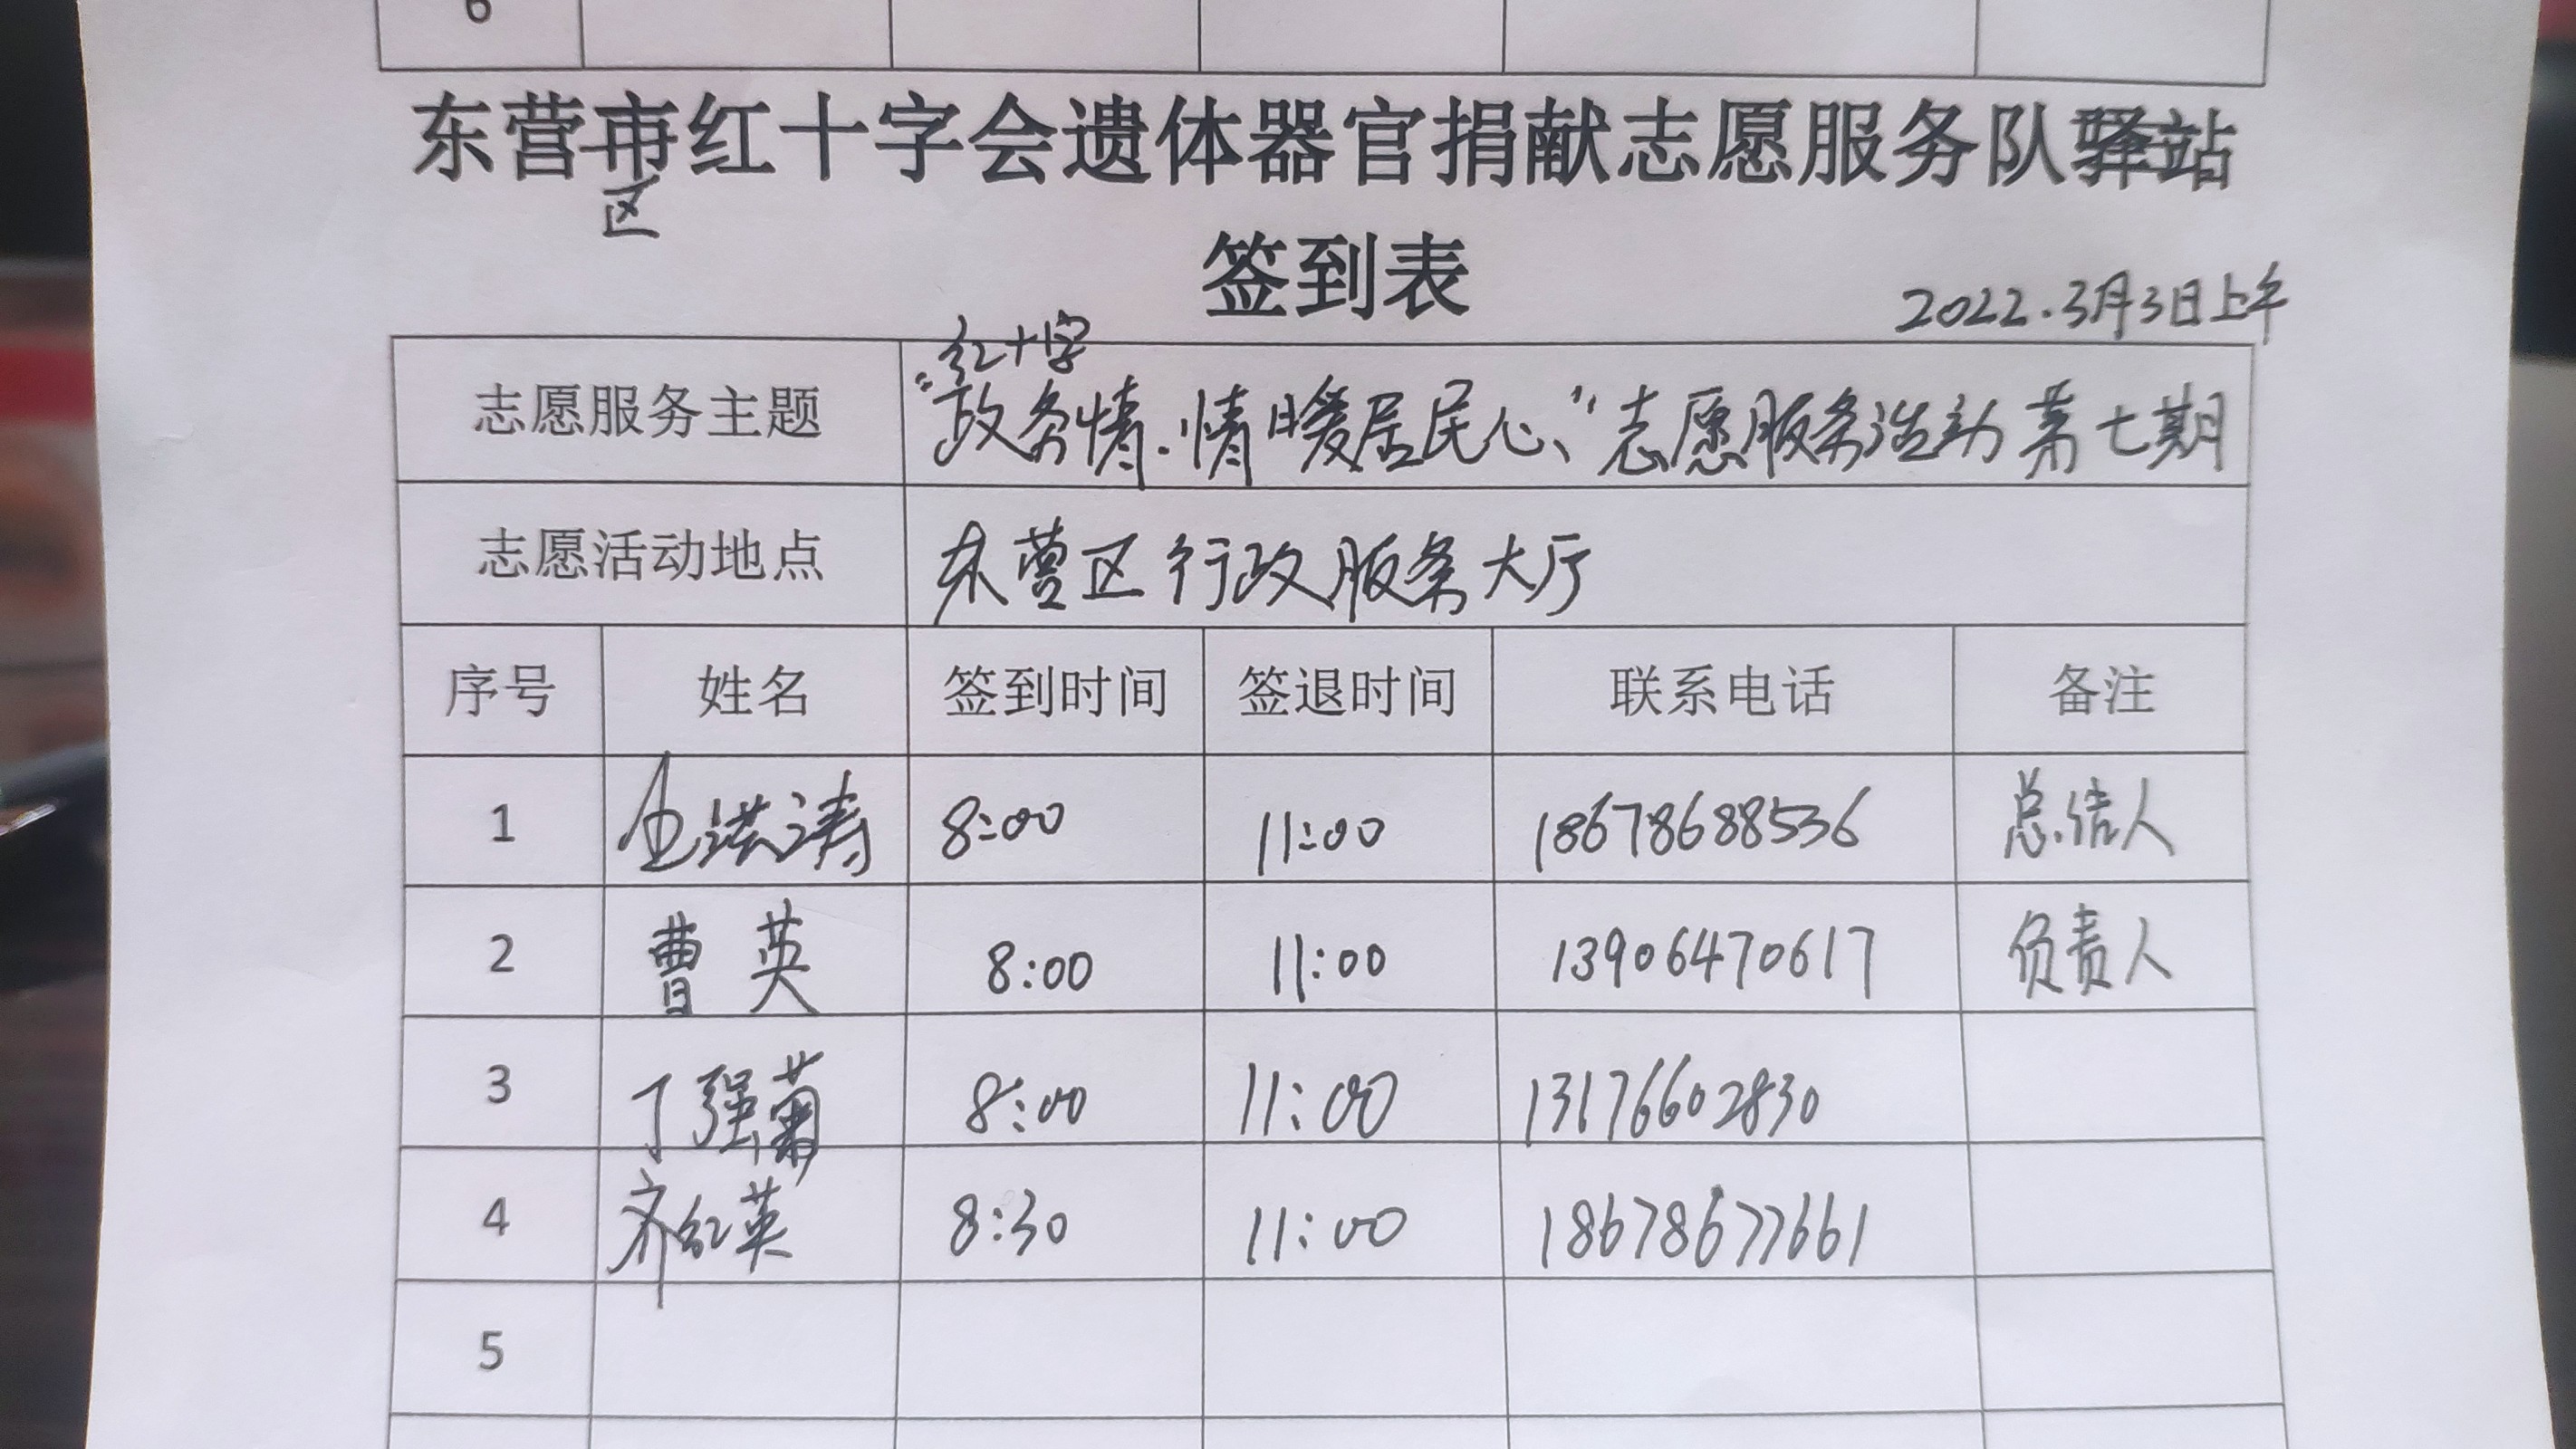 6
东营市红十字会遗体器官捐献志愿服务队驿站
区
签到表
2022.3月3日上午
红十字
志愿服务主题 “政务情.情暖居民心”志愿服务活动第七期
志愿活动地点 东营区行政服务大厅
序号 姓名 签到时间 签退时间 联系电话 备注
1 洪涛 8:00 11:00 18678688536 总结人
2 曹英 8:00 11:00 13906470617 负责人
3 丁强菊 8:00 11:00 13176602830
4 齐红英 8:30 11:00 18678677661
5